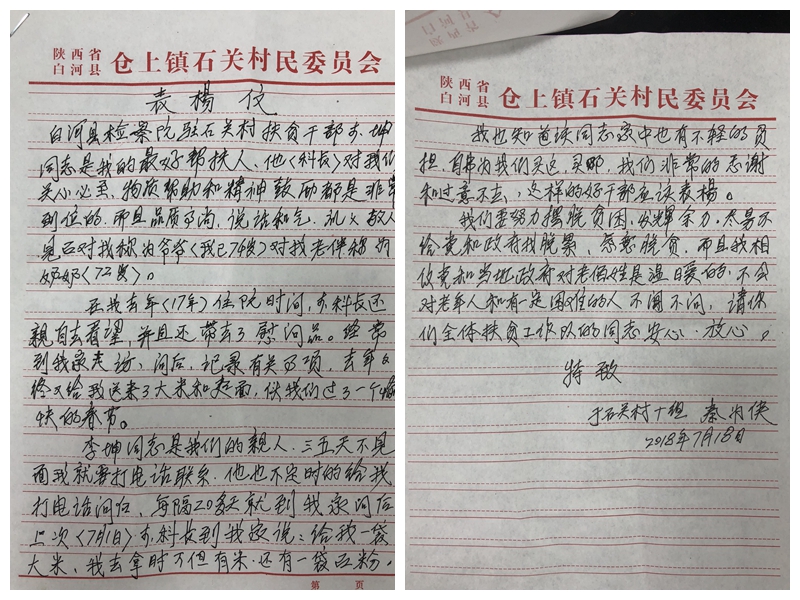 陕西省
白河县 仓上镇石关村民委员会
表楊仪
白河县检察院驻石关村扶贫干部李坤
同志是我的最好帮扶人、他<科长>对我们
关心必至、物质帮助和精神鼓励都是非常
到位的、而且品质高尚，说话和气、礼义
见面对我称为爷爷<我已74岁>对我老伴称为
奶奶<72岁>。
在我去年<17年>住院时间，李科长还
亲自去看望、并且还带去了慰问品。经常
到我家走访、问后、记录有关事项，去年
终又给我送来了大米和麦面，伙我们过了一个愉
快的春节。
李坤同志是我们的親人、三五天不见
面我就要打电话联系、他也不定时的给我
打电话问后，每隔20多天就到我家问后
上次<7月1日>李科长到我家说：给我一袋
大米、我去拿时不但有米、还有一袋豆粉。
第 页
陕西省
白河县 仓上镇石关村民委员会
我也知道该同志家中也有不轻的负
担、自掏为我们买这买那，我们非常的感谢
和过意不去，这样的好干部应该表楊。
我们要努力摆脱贫困、发辉余力、尽量不
给党和政府找脱累、愿意脱贫、而且我相
仪党和当地政府对老佰姓是温暖的、不会
对老年人和有一定困难的人不闻不问，请你
们全体扶贫工作队的同志安心、放心。
特致
于石关村十组 秦
2018年7月18日